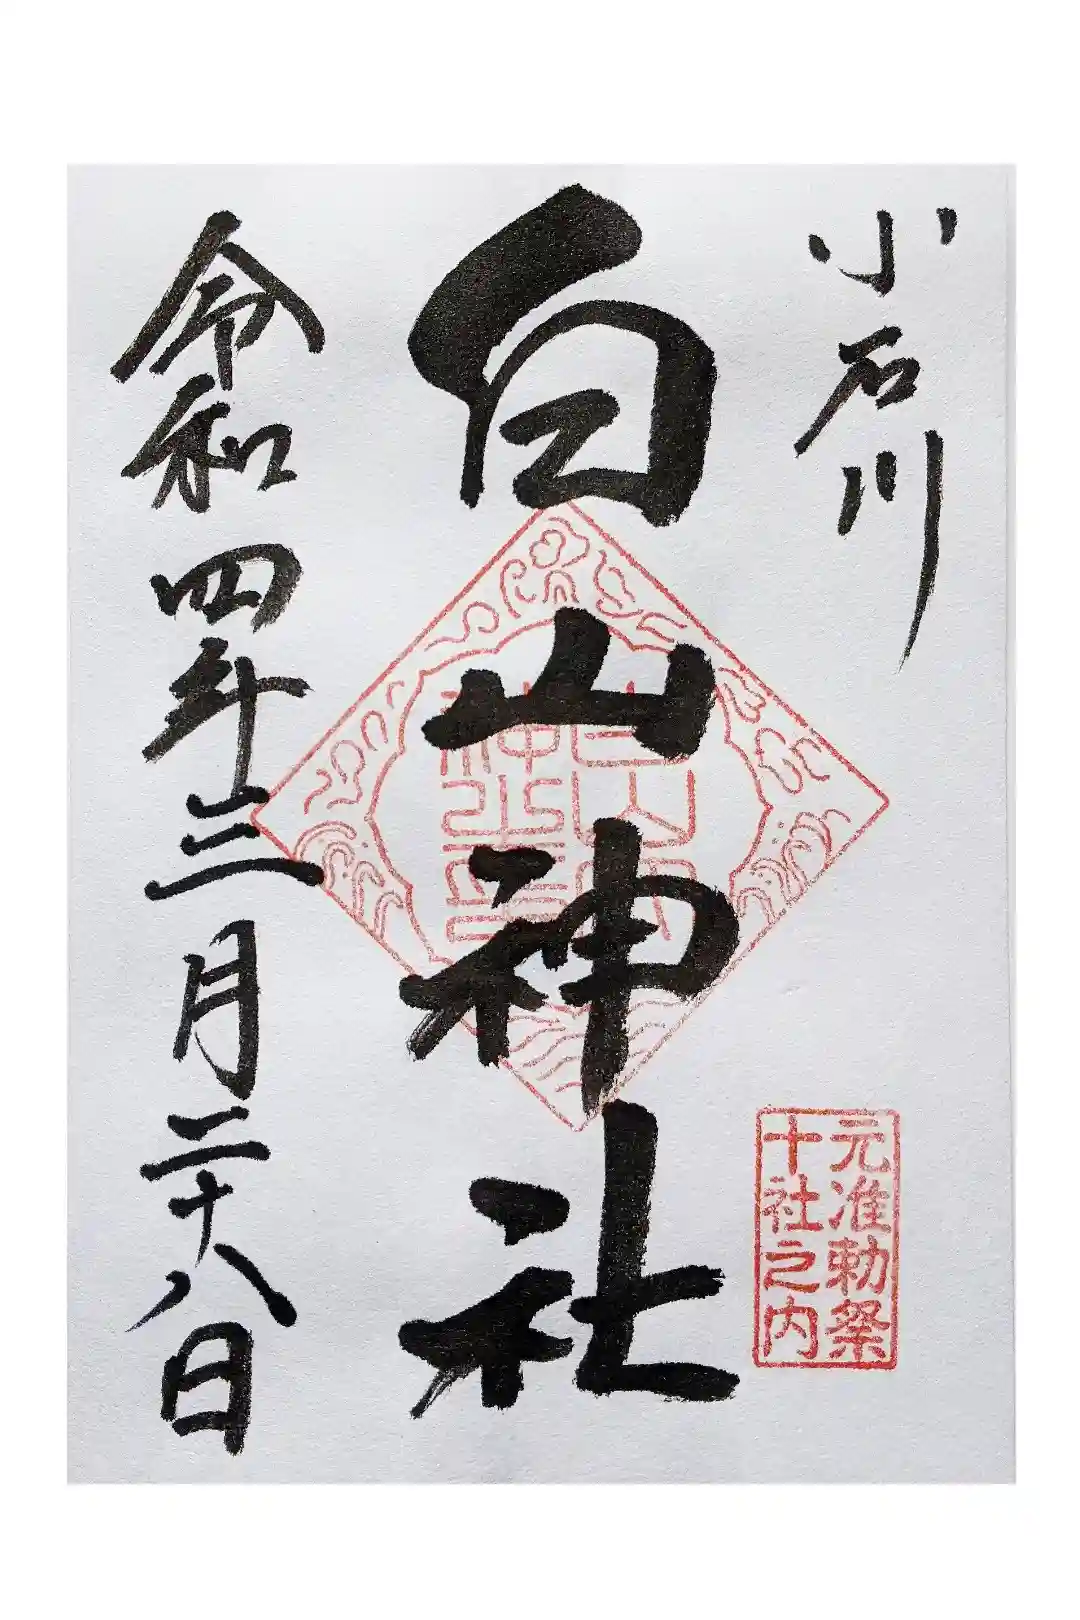 小石川
白山神社
令和四年三月二十八日
元准勅祭
十社之内